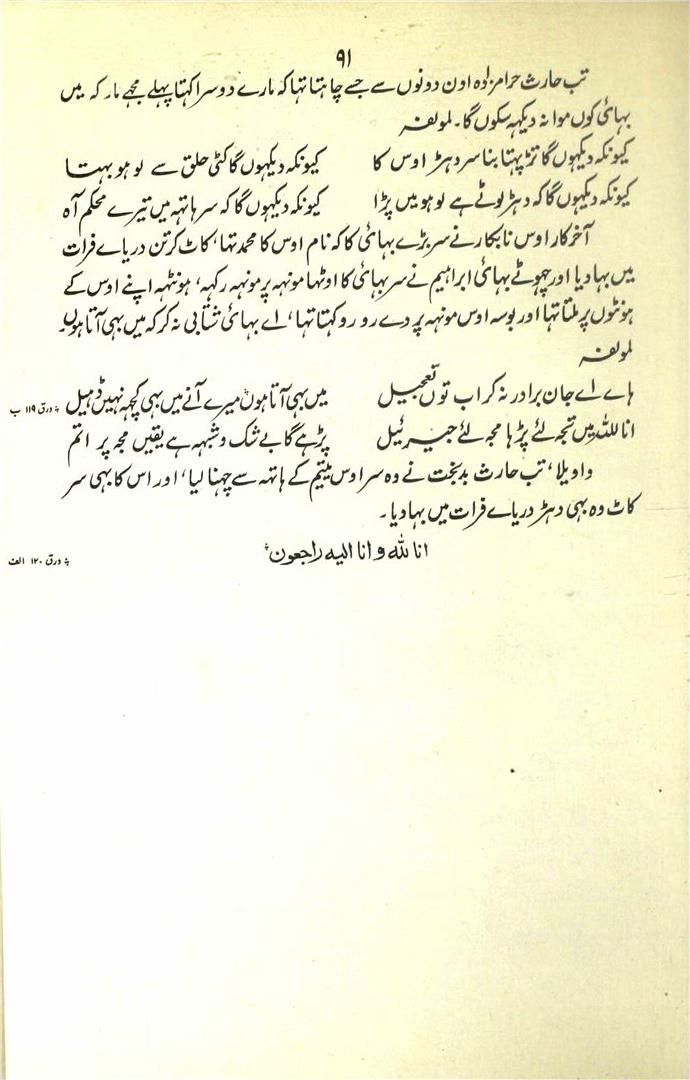 ۹۱
تب حارث حرامزادہ اون دونوں سے جسے چاہتا تہا کہ مارے دوسرا کہتا پہلے مجھے مار کہ میں
بہائی کوں موا نہ دیکہہ سکوں گا۔ لمولفہ
کیونکہ دیکہوں گا تڑپہتا بنا سر دہڑ اوس کا کیونکہ دیکہوں گا کٹی حلق سے لوہو بہتا
کیونکہ دیکہوں گا کہ دہڑ لوٹے ہے لوہو میں پڑا کیونکہ دیکہوں گا کہ سر ہاتہہ میں تیرے محکم آہ
آخر کار اوس نابکار نے سر بڑے بہائی کا کہ نام اوس کا محمد تہا، کاٹ کر تن دریاے فرات
میں بہا دیا اور چہوٹے بہائی ابراہیم نے سر بہائی کا اوٹہا مونہہ پر مونہہ رکہہ، ہونٹہہ اپنے اوس کے
ہونٹوں پر ملتا تہا اور بوسہ اوس مونہہ پر دے رو رو کہتا تہا، اے بہائی شتابی نہ کر کہ میں بہی آتا ہوں۔
لمولفہ
ہاے اے جان برادر نہ کر اب توں تعجیل میں بہی آتا ہوں میرے آنے میں بہی کچہہ نہیں ڈہیل
؂ ورق ۱۱۹ ب
انا للہ میں تجہ لئے پڑہا مجہ لئے جبرئیل پڑہے گا بے شک و شبہہ ہے یقیں مجہ پر اتم
واویلا، تب حارث بدبخت نے وہ سر اوس یتیم کے ہاتہہ سے چہنا لیا، اور اس کا بہی سر
کاٹ وہ بہی دہڑ دریاے فرات میں بہا دیا۔
انا للہ و انا الیہ راجعون
؂ ورق ۱۲۰ الف